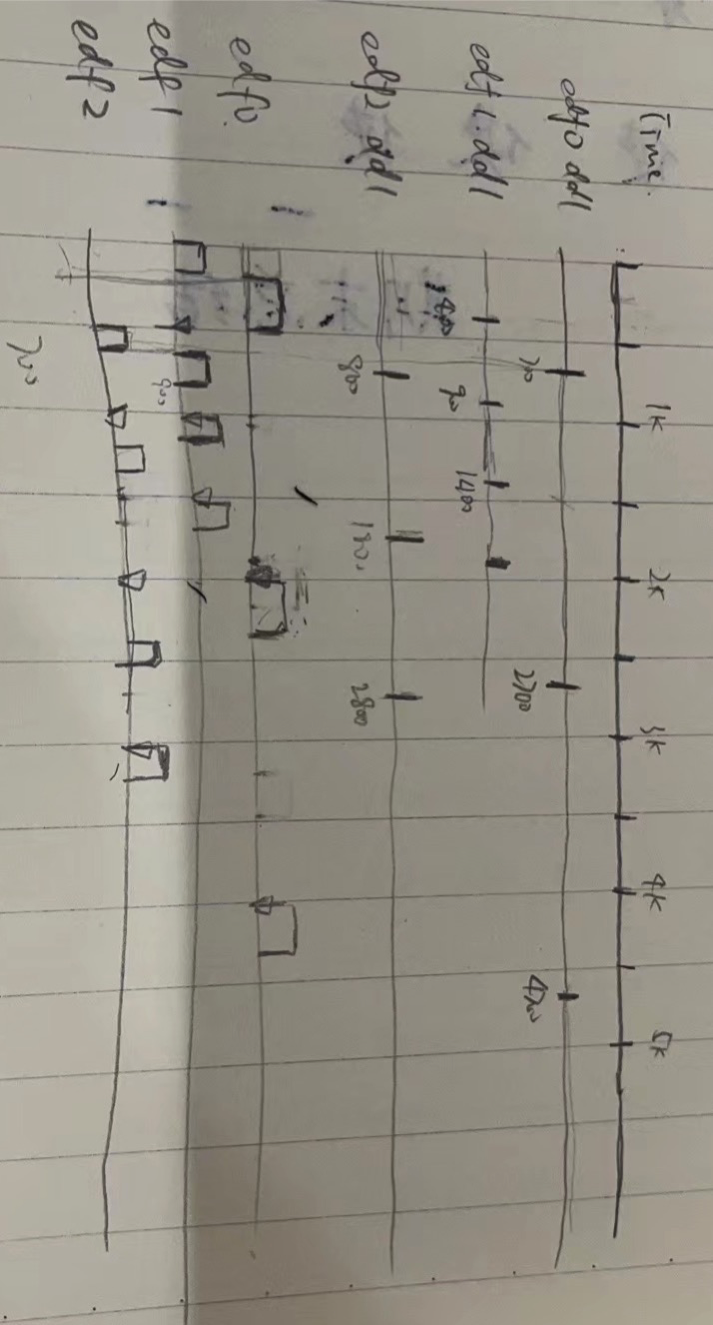 Time. 1k 2k 3k 4k 5k
edf0 ddl 700 2700 4700
edf1.ddl 400 900 1400
edf2.ddl 800 1800 2800
edf0.
edf1 900
edf2
700